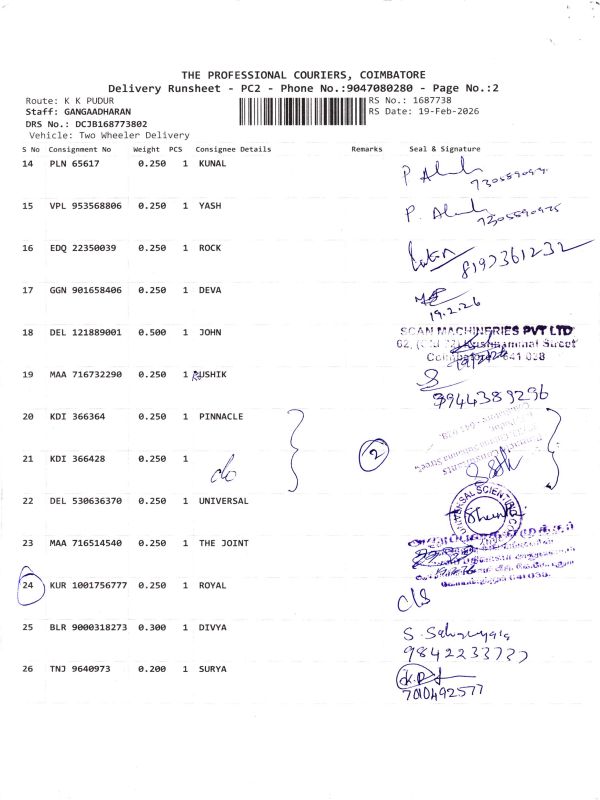 THE PROFESSIONAL COURIERS, COIMBATORE
Delivery Runsheet - PC2 - Phone No.:9047080280 - Page No.:2
Route: K K PUDUR
RS No.: 1687738
Staff: GANGAADHARAN
RS Date: 19-Feb-2026
DRS No.: DCJB168773802
Vehicle: Two Wheeler Delivery
S No Consignment No Weight PCS Consignee Details Remarks Seal & Signature
14 PLN 65617 0.250 1 KUNAL
15 VPL 953568806 0.250 1 YASH
16 EDQ 22350039 0.250 1 ROCK
8197361232
17 GGN 901658406 0.250 1 DEVA
19.2.26
18 DEL 121889001 0.500 1 JOHN
SCAN MACHINERIES PVT LTD
Krishnammal Street
19 MAA 716732290 0.250 1 RUSHIK
9944389296
20 KDI 366364 0.250 1 PINNACLE
2
21 KDI 366428 0.250 1
do
22 DEL 530636370 0.250 1 UNIVERSAL
UNIVERSAL SCIENTIFIC
23 MAA 716514540 0.250 1 THE JOINT
24 KUR 1001756777 0.250 1 ROYAL
C/S
25 BLR 9000318273 0.300 1 DIVYA
26 TNJ 9640973 0.200 1 SURYA
7010492577